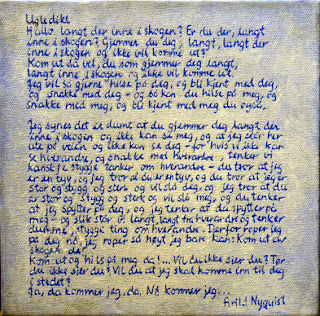 Ugledikt
Hallo langt der inne i skogen? Er du der, langt
inne i skogen? Gjemmer du deg, langt, langt der
inne i skogen og ikke vil komme ut?
Kom ut da vel, du som gjemmer deg langt,
langt inne i skogen og ikke vil komme ut.
Jeg vil så gjerne hilse på deg, og bli kjent med deg,
og snakke med deg - og så kan du hilse på meg, og
snakke med meg, og bli kjent med meg du også.
Jeg synes det er dumt at du gjemmer deg langt der
inne i skogen og ikke kan se meg, og at jeg står her
ute på veien og ikke kan se deg - for hvis vi ikke kan
se hverandre, og snakke med hverandre, tenker vi
kanskje stygge tanker om hverandre - du tror at jeg
er en tyv, og jeg tror at du er en tyv, og du tror at jeg er
stor og stygg og sterk og vil slå deg, og jeg tror at du
er stor og stygg og sterk og vil slå meg, og du tenker
at jeg spytter på deg, og jeg tenker at du spytter på
meg - og slik står vi langt, langt fra hverandre og tenker
dumme, stygge ting om hverandre. Derfor roper jeg
på deg nå, jeg roper så høyt jeg bare kan: Kom ut av
skogen da!
Kom ut og hils på meg da!... Vil du ikke sier du? Tør
du ikke sier du? Vil du at jeg skal komme inn til deg
i stedet?
Ja, da kommer jeg, da. Nå kommer jeg...
Arild Nyquist